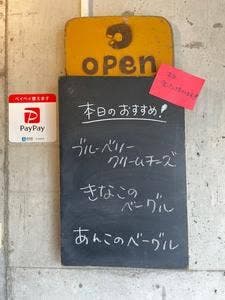 open
ペイペイ使えます
PayPay
本日のおすすめ!
ブルーベリー
クリームチーズ
きなこの
ベーグル
あんこのベーグル